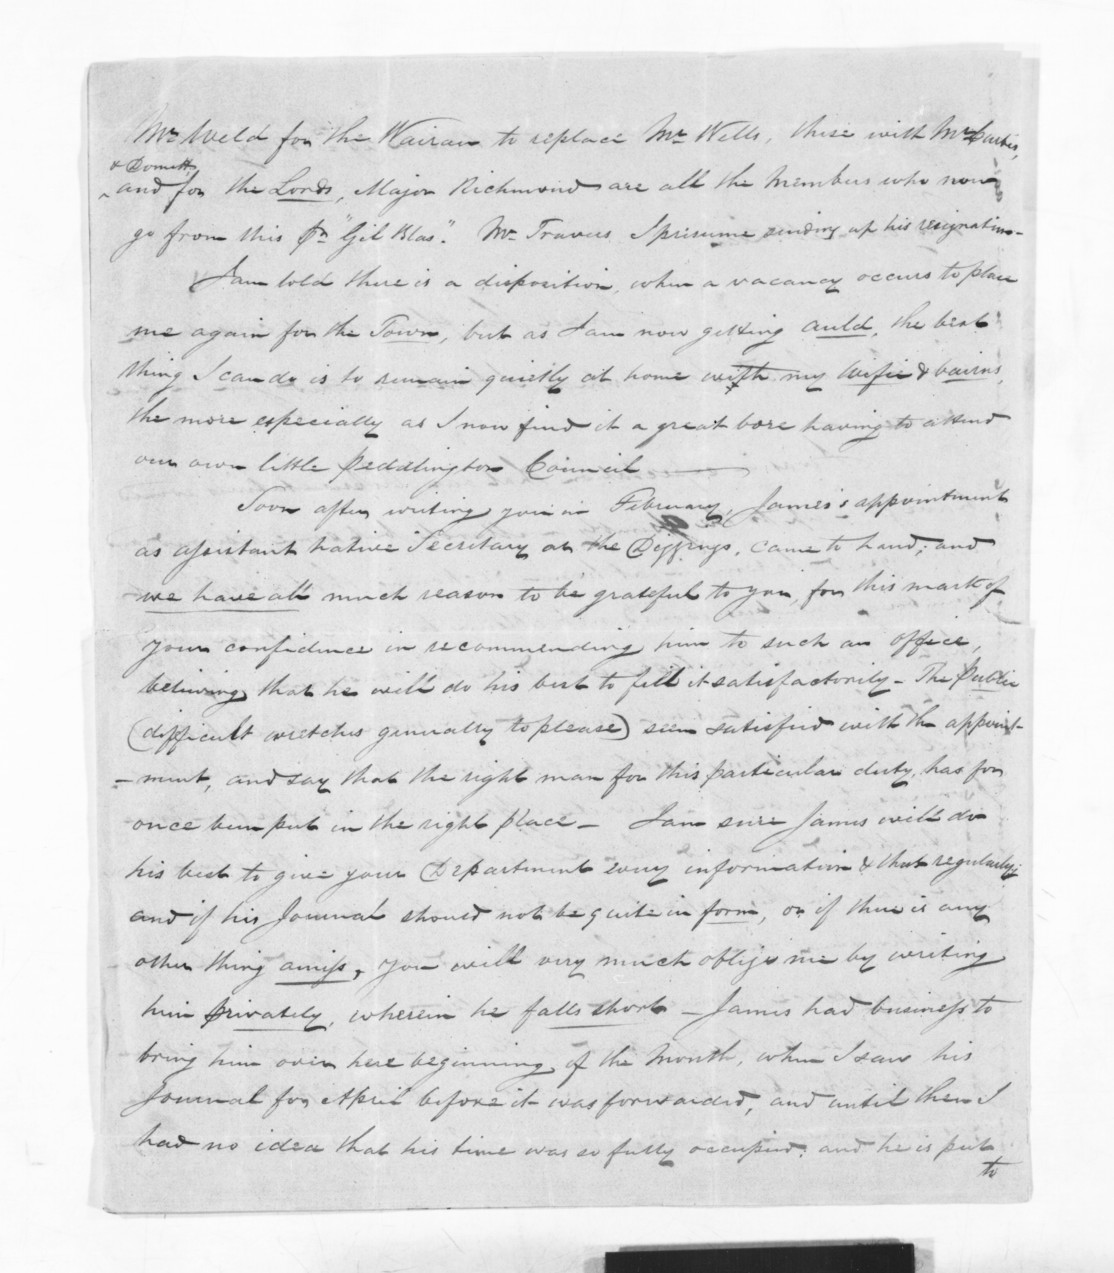 Mr Weld for the Wairau to replace Mr Wells, these with Mr Curtis,
& Domett,
and for the Lords, Major Richmond are all the Members who now
go from this pr "Gil Blas". Mr Travers I presume sending up his resignation -
I am told there is a disposition, when a vacancy occurs to place
me again for the Town, but as I am now getting auld, the best
thing I can do is to remain quietly at home with my Wifie & bairns,
the more especially as I now find it a great bore having to attend
our own little Peddlington Council ———
Soon after writing you in February, James's appointment
as assistant native Secretary at the Diggings, came to hand; and
we have all much reason to be grateful to you, for this mark of
your confidence in recommending him to such an office,
believing that he will do his best to fill it satisfactorily - The Public
(difficult wretches generally to please) seem satisfied with the appoint-
-ment, and say that the right man for this particular duty, has for
once been put in the right place - I am sure James will do
his best to give your Department every information & that regularly;
and if his Journal should not be quite in form, or if there is any
other thing amiss, you will very much oblige me by writing
him privately, wherein he falls short - James had business to
bring him over here beginning of the Month, when I saw his
Journal for April before it was forwarded, and until then I
had no idea that his time was so fully occupied: and he is put
to